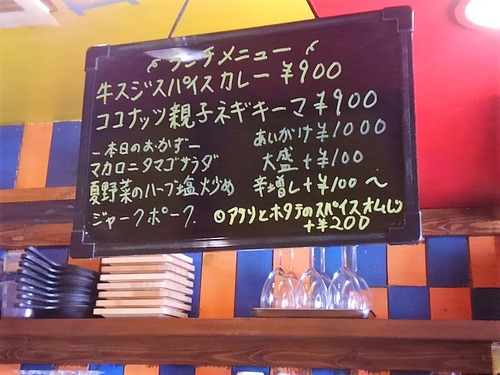 ランチメニュー
牛スジスパイスカレー ¥900
ココナッツ親子ネギキーマ ¥900
あいがけ ¥1000
大盛 +¥100
辛増し +¥100 〜
ー本日のおかずー
マカロニタマゴサラダ
夏野菜のハーブ塩炒め
ジャークポーク
◎アサリとホタテのスパイスオムレツ
+¥200